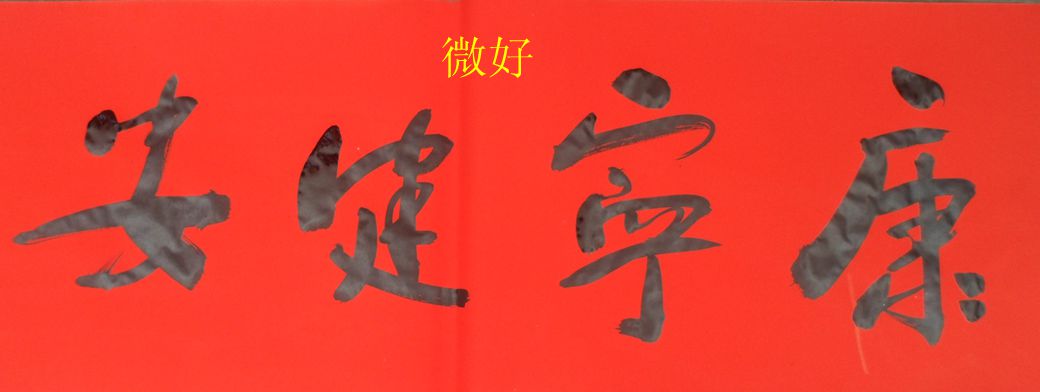 微好
康宁健安